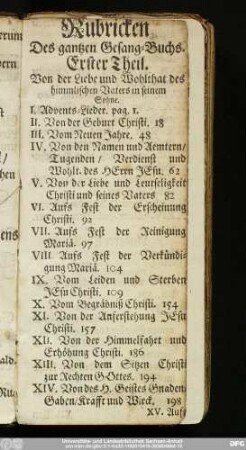 Rubricken
Des gantzen Gesang-Buchs.
Erster Theil.
Von der Liebe und Wohlthat des
himmlischen Vaters in seinem
Sohne.
I. Advents-Lieder. pag. 1.
II. Von der Geburt Christi. 18
III. Vom Neuen Jahre. 48
IV. Von den Namen und Aemtern/
Tugenden/ Verdienst und
Wohlt. des HErrn JEsu. 62
V. Von der Liebe und Leutseligkeit
Christi und seines Vaters 82
VI. Aufs Fest der Erscheinung
Christi. 92
VII. Aufs Fest der Reinigung
Mariä. 97
VIII Aufs Fest der Verkündi-
gung Mariä. 104
IX. Vom Leiden und Sterben
JEsu Christi. 109
X. Vom Begräbniß Christi. 154
XI. Von der Auferstehung JEsu
Christi. 157
XII. Von der Himmelfahrt und
Erhöhung Christi. 186
XIII. Von dem Sitzen Christi
zur Rechten GOttes. 194
XIV. Von des H. Geistes Gnaden
Gaben/ Krafft und Wirck. 198
XV. Aufs